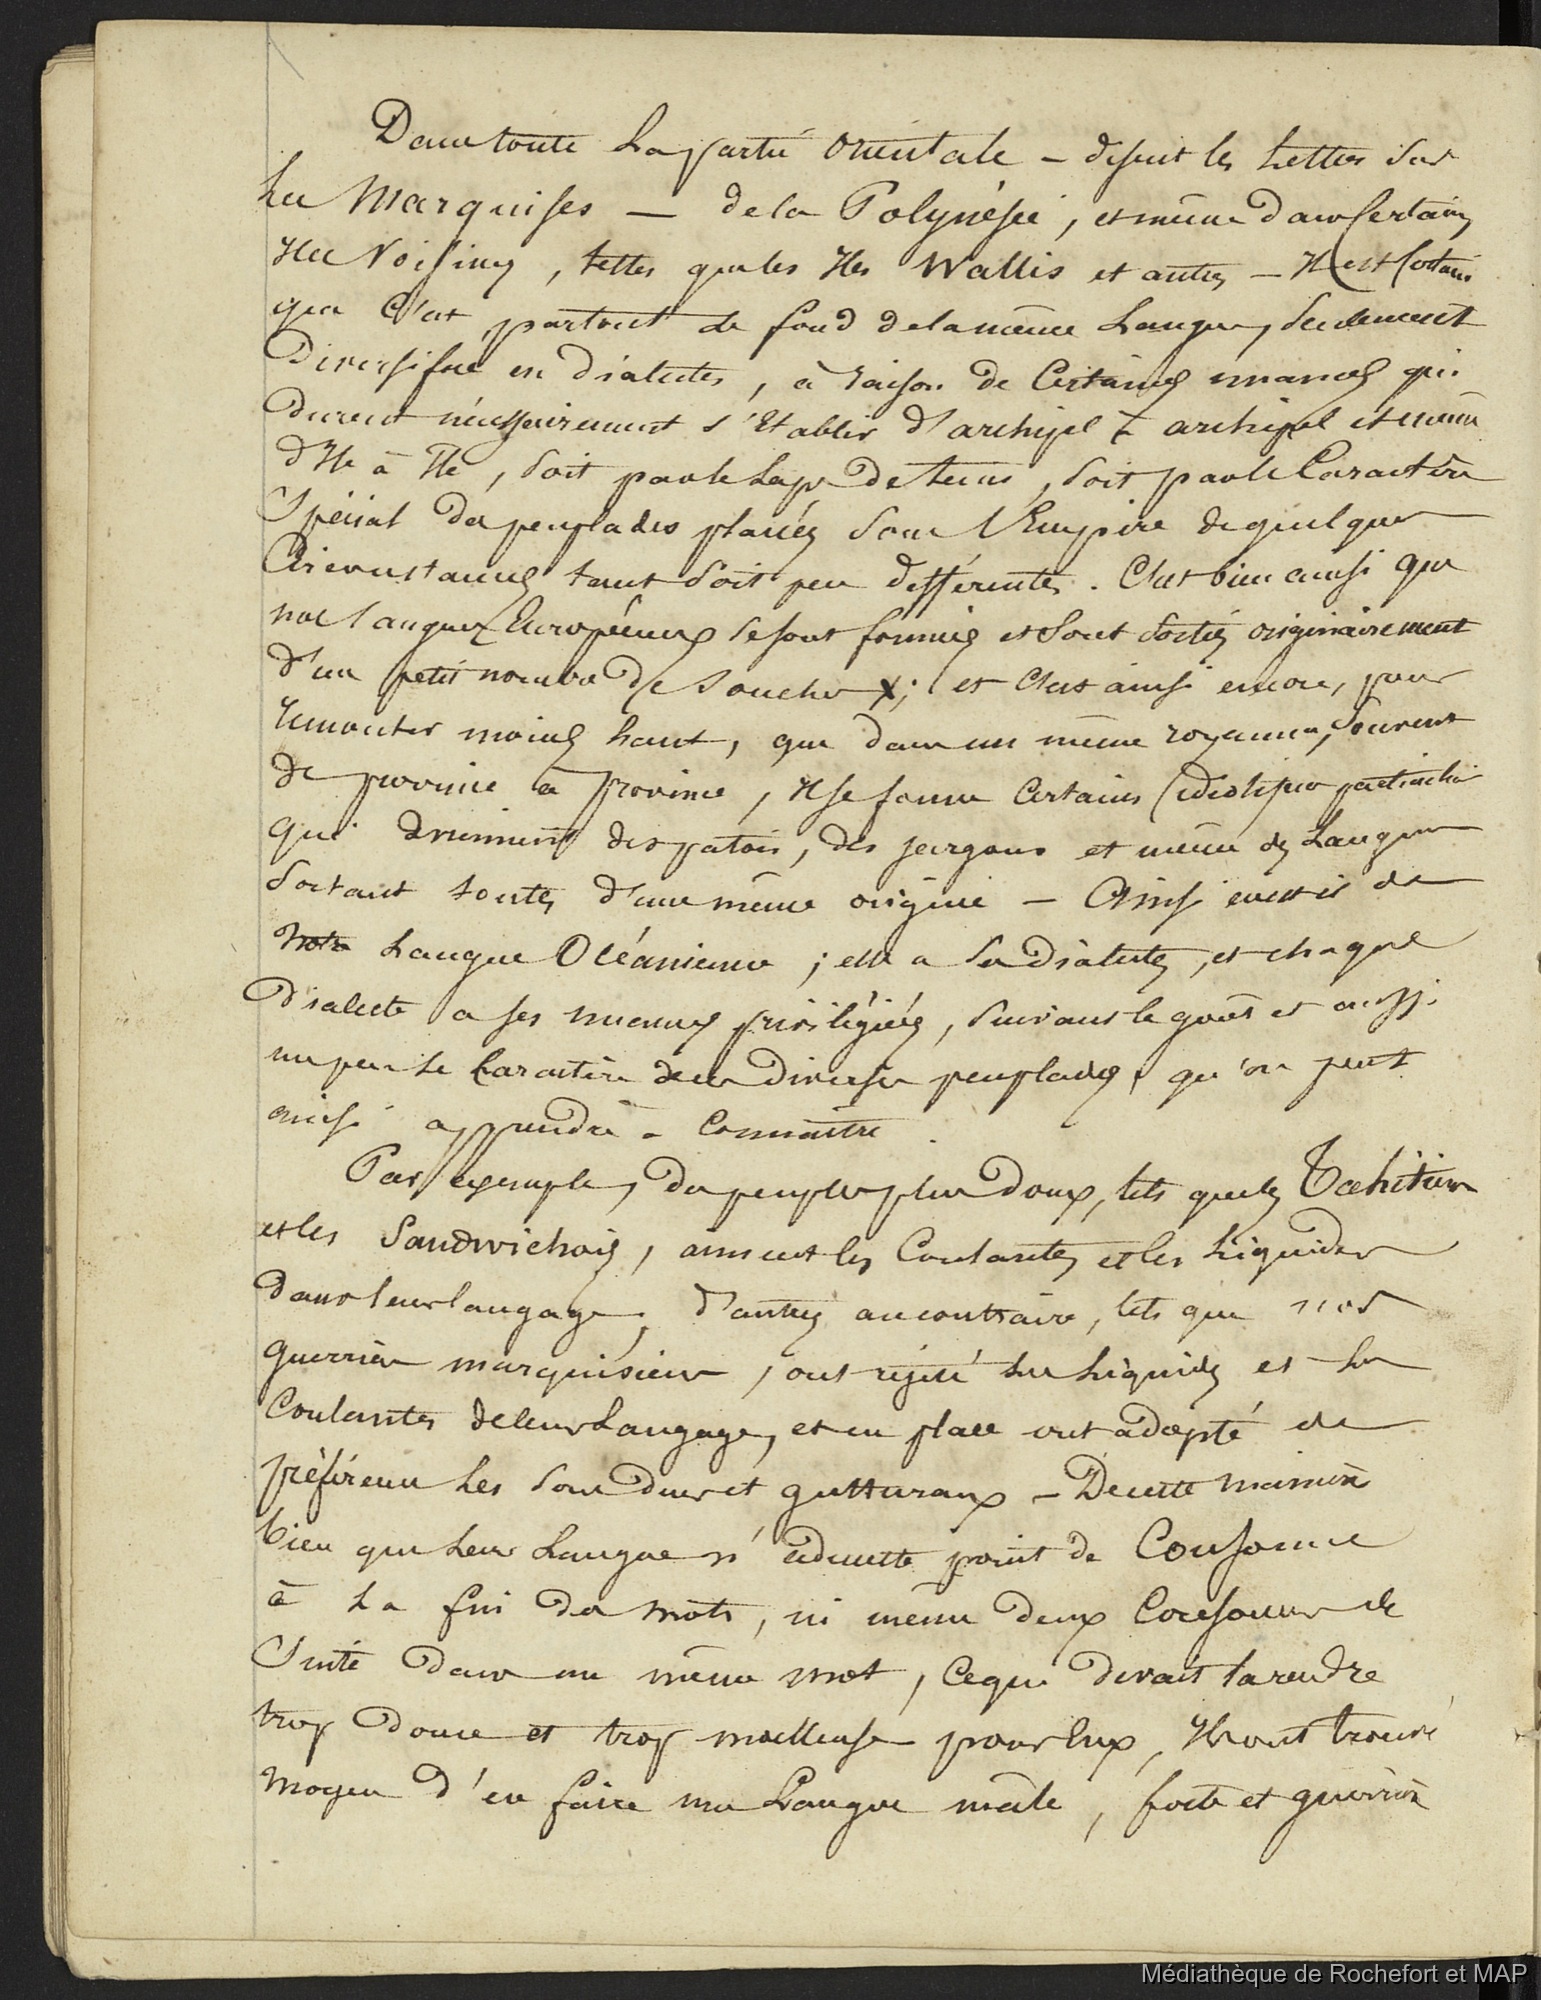 Dans toute la partie orientale – disent les Lettres sur
les Marquises – de la Polynésie, et même dans certaines
Iles voisines, telles que les Iles Wallis et autres – Il est certain
que c'est partout le fond de la même Langue, seulement
Diversifiée en Dialectes, à raison de certaines nuances qui
durent nécessairement s'établir d'archipel à archipel et même
d'Ile à Ile, soit par le Laps de tems, soit par le Caractère
Spécial des peuplades placées sous l'Empire de quelques
Circonstances tant soit peu différentes. C'est bien ainsi que
nos langues Européennes se sont formées et sont sorties originairement
d'un petit nombre de souches ; et c'est ainsi encore, pour
remonter moins haut, que dans un même royaume, souvent
de province à province, Il se forme certains particuliers
qui deviennent des patois, des jargons et même des Langues
sortant toutes d'une même origine – Ainsi en est-il de
notre Langue Océanienne ; elle a ses Dialectes, et chaque
Dialecte a ses nuances privilégiées, suivant le goût et aussi
un peu le Caractère de ces diverses peuplades, qu'on peut
ainsi apprendre à Connaître.
Par exemple, des peuples plus doux, tels que les Taehitiens
et les Sandwichois, aiment les Coulantes et les Liquides
dans leur langage, d'autres au contraire, tels que nos
guerriers marquisiens, ont rejeté les Liquides et les
Coulantes de leur Langage, et en place ont adopté de
préférence les sons durs et gutturaux – De cette manière
bien que leur Langue n'admette point de Consonne
à la fin des mots, ni même deux Consonnes de
Suite dans un même mot, ce qui devait la rendre
trop douce et trop moelleuse pour eux, Ils ont trouvé
moyen d'en faire une Langue mâle, forte et guerrière
Médiathèque de Rochefort et MAP